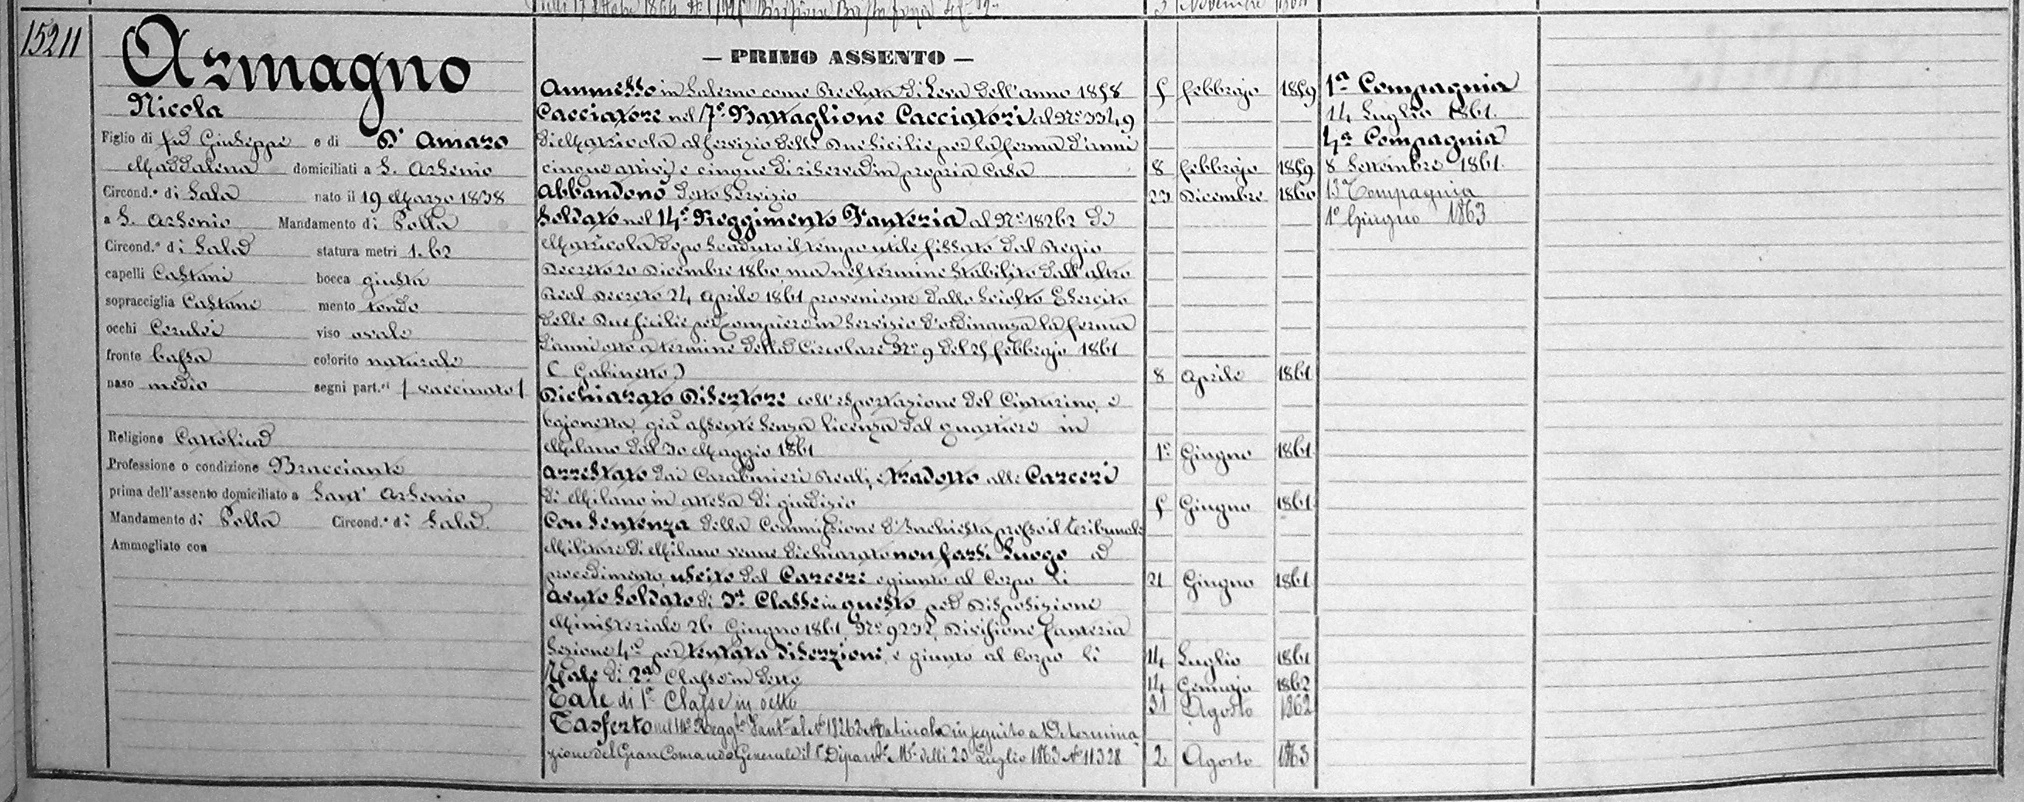 15211
Armagno
Nicola
Figlio di fu Giuseppe e di D'Amaro
Maddalena domiciliati a S. Arsenio
Circond.º di Sala nato il 19 Marzo 1838
a S. Arsenio Mandamento di Polla
Circond.º di Sala statura metri 1.62
capelli Castani bocca giusta
sopracciglia Castane mento tondo
occhi Cerulei viso ovale
fronte bassa colorito naturale
naso medio segni part.ri (vaccinato)
Religione Cattolica
Professione o condizione Bracciante
prima dell'assento domiciliato a Sant'Arsenio
Mandamento di Polla Circond.º di Sala
Ammogliato con
— PRIMO ASSENTO —
Ammesso in Salerno come Recluta di Leva dell'anno 1858 5 febbrajo 1859
Cacciatore nel 7º Battaglione Cacciatori al Nº 3349
di Matricola al servizio delle Due Sicilie per la ferma d'anni
cinque attivi e cinque di riserva in propria Casa 8 febbrajo 1859
Abbandonò detto servizio 23 Dicembre 1860
Soldato nel 14º Reggimento Fanteria al Nº 18262 di
Matricola dopo scaduto il tempo utile fissato dal Regio
Decreto 20 Dicembre 1860 ma nel termine stabilito dall'altro
Real Decreto 24 Aprile 1861 proveniente dallo sciolto Esercito
delle Due Sicilie per compiere in servizio d'ordinanza la ferma
d'anni otto a termine della Circolare Nº 9 del 25 febbrajo 1861
(Gabinetto) 8 Aprile 1861
Dichiarato Disertore coll'esportazione del Cinturino e
bajonetta, già assente senza licenza dal quartiere in
Milano dal 30 Maggio 1861 1º Giugno 1861
Arrestato dai Carabinieri Reali, e tradotto alle Carceri
di Milano in attesa di giudizio 5 Giugno 1861
Con Sentenza della Commissione d'Inchiesta presso il Tribunale
Militare di Milano venne dichiarato non farsi luogo a
procedimento, uscito dal Carcere e giunto al Corpo li 21 Giugno 1861
Avuto Soldato di 3ª Classe in questo per Disposizione
Ministeriale 26 Giugno 1861 Nº 9232 Divisione fanteria
Sezione 4ª per tentata diserzione, e giunto al Corpo li 14 Luglio 1861
Tale di 2ª Classe in detto 14 Gennajo 1862
Tale di 1ª Classe in detto 31 Agosto 1862
Tasferto nel Regg.to Fant.a al Nº 18262 di Matricola in seguito a Determina
zione del Gran Comando Generale il Dipart.º M.re delli 23 Luglio 1863 Nº 11328 2 Agosto 1863
1ª Compagnia
14 Luglio 1861.
4ª Compagnia
8 Settembre 1861.
13ª Compagnia
1º Giugno 1863